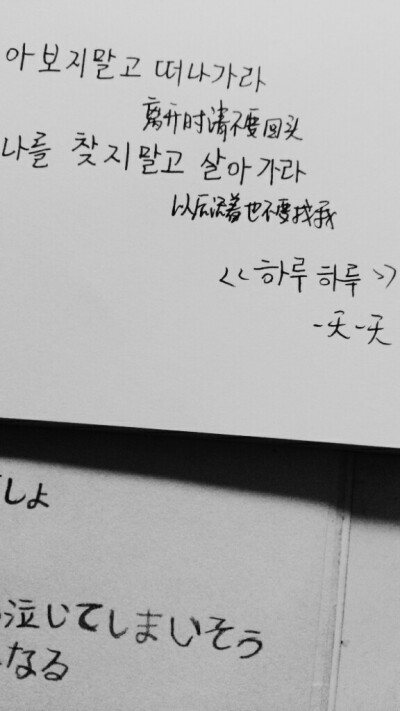 아보지말고 떠나가라
离开时请不要回头
나를 찾지말고 살아가라
以后活着也不要找我
<<하루하루>>
一天一天
しょ
泣いてしまいそう
なる